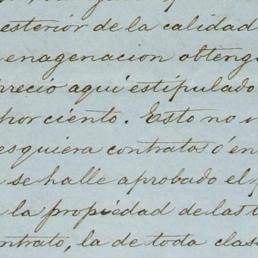 esterior de la calidad
enagenacion obteng
precio aqui estipulado
por ciento. Esto no
esquiera contratos ó en
se halle aprobado el
la propiedad de las t
ntrato, la de toda clas